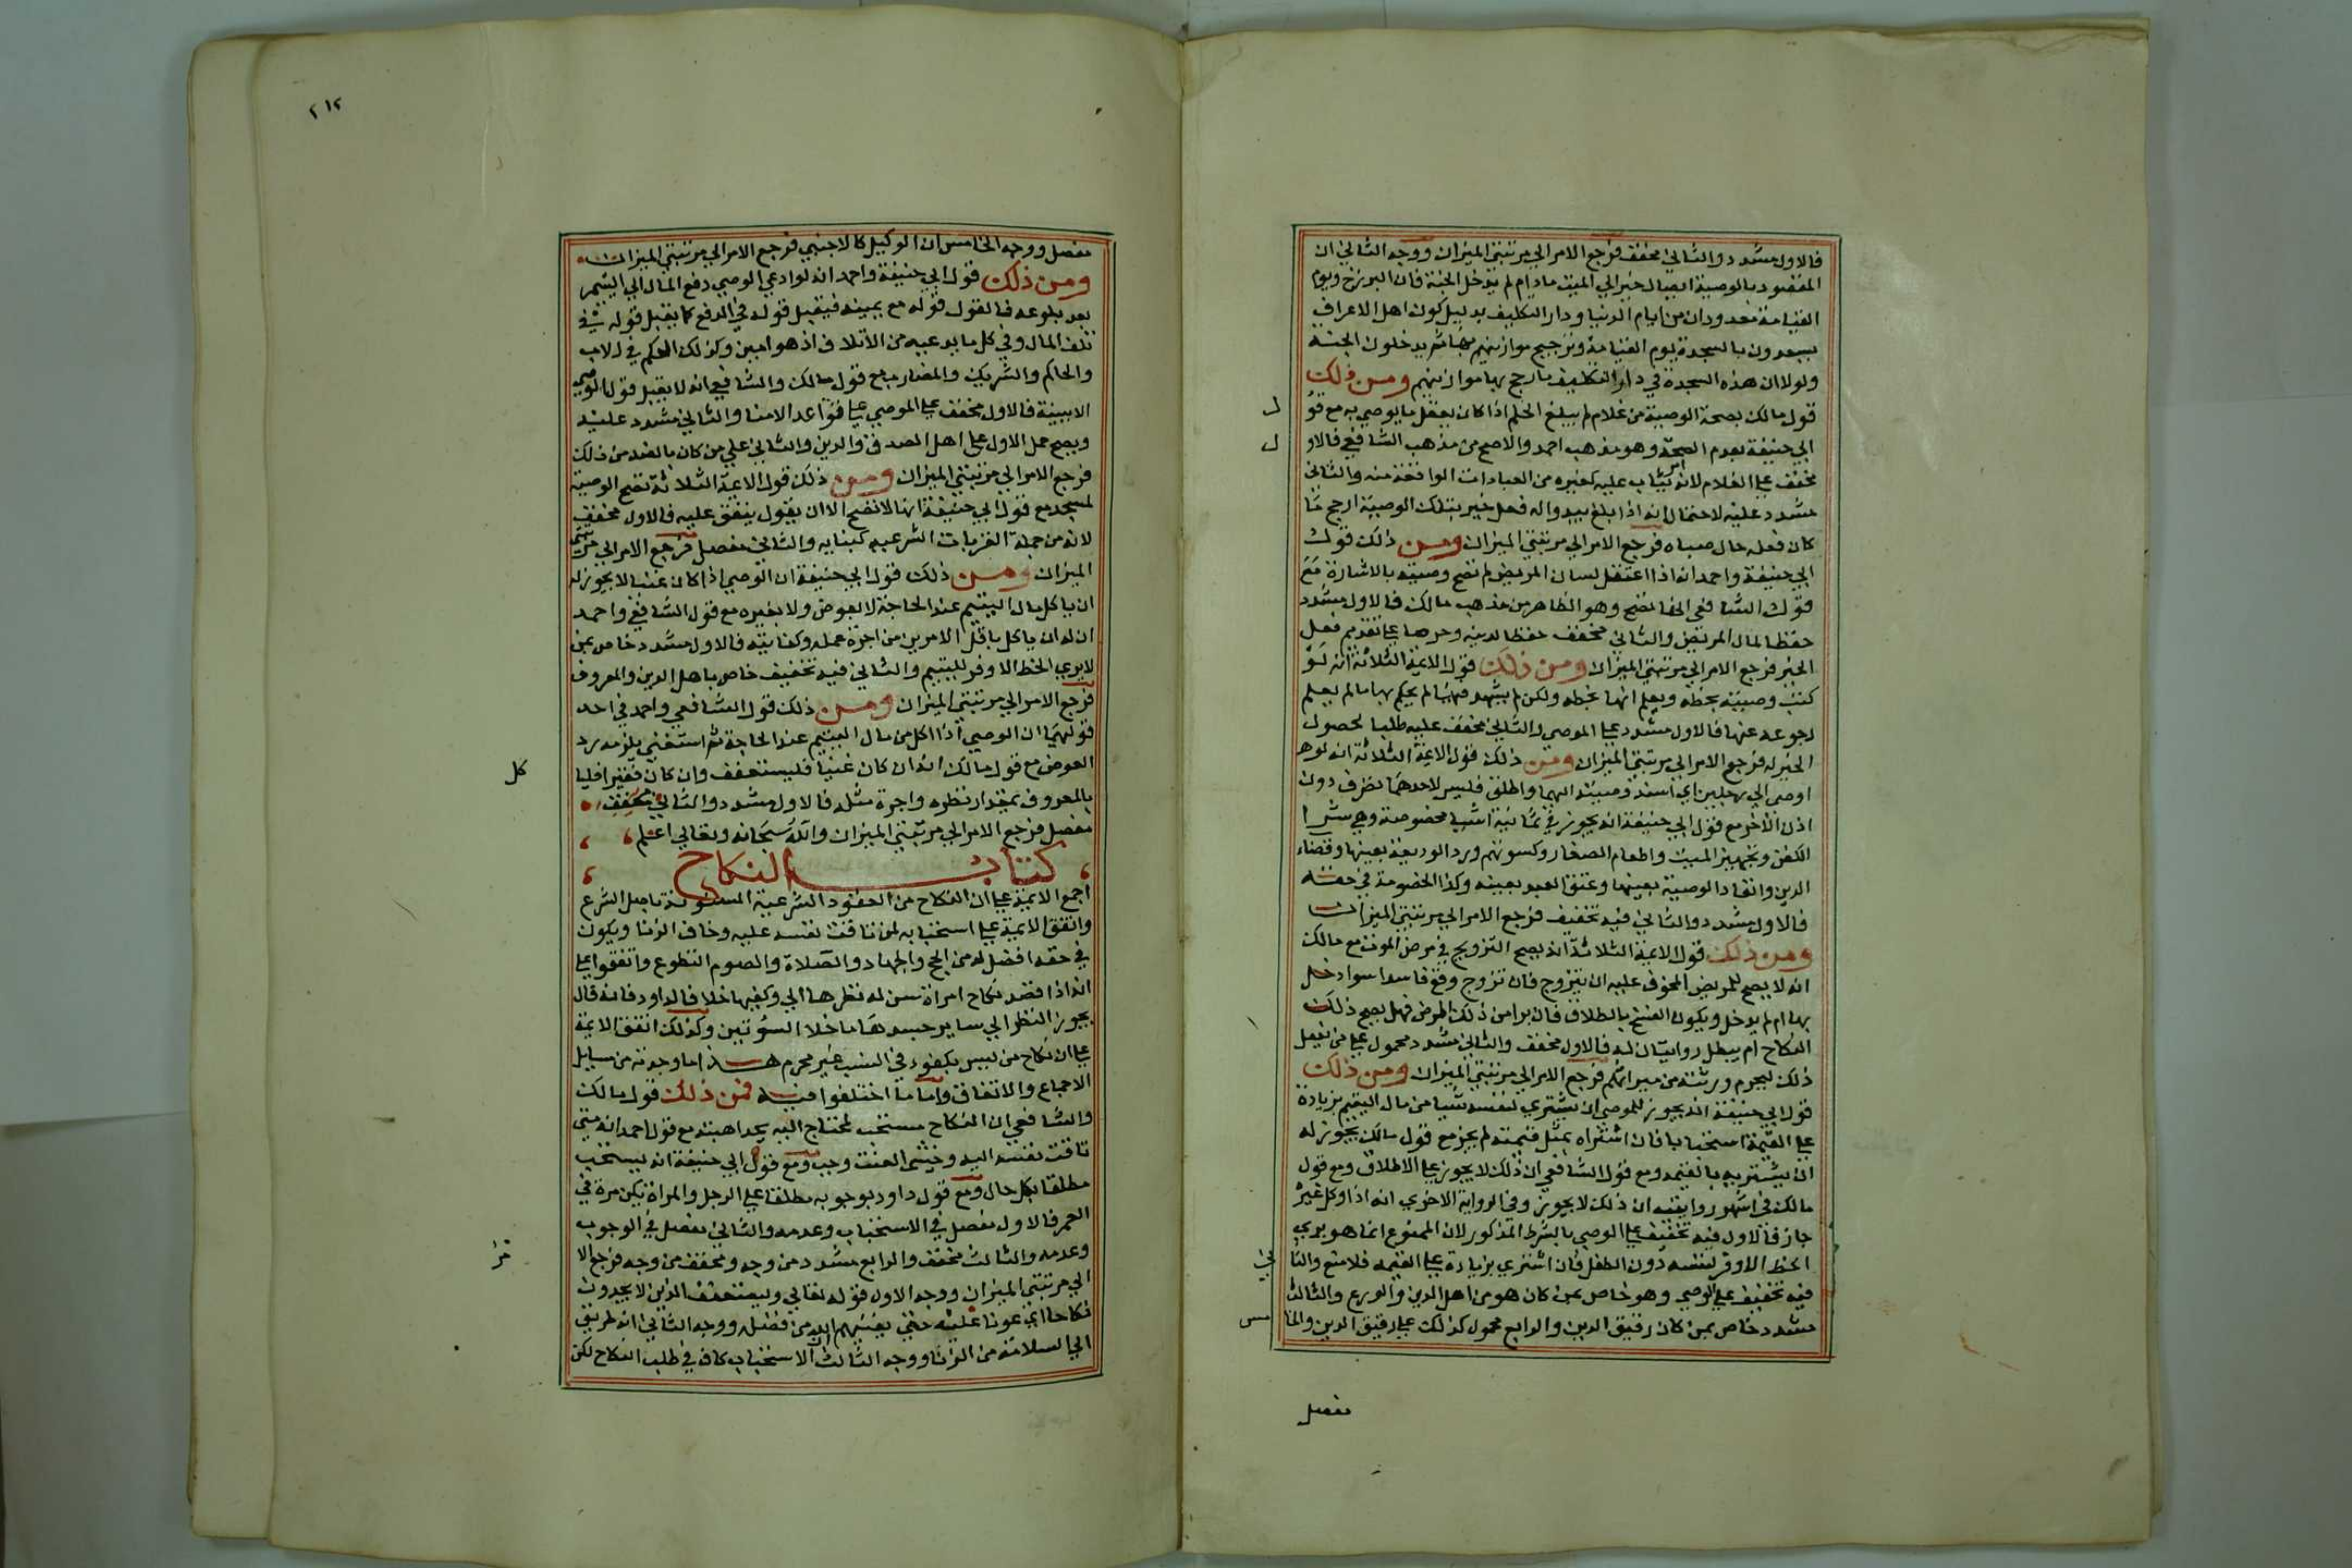 فالاول مشدد والثاني مخفف فرجع الامر الي مرتبتي الميزان ووجه الثاني ان
المقصود بالوصية ايصال خير الي الميت مادام لم يدخل الجنة فان البرزخ ويوم
القيامة معدودان من ايام الدنيا ودار التكليف بدليل كون اهل الاعراف
يسعدون بالسجدة يوم القيامة وترجح موازينهم بها ثم يدخلون الجنة
ولولا ان هذه السجدة في دار التكليف ما رجح بها موازينهم ومن ذلك
قول مالك بصحة الوصية من غلام لم يبلغ الحلم اذا كان يعقل ما يوصي به مع قو
ل
ابي حنيفة بعدم الصحة وهو مذهب احمد والاصح من مذهب الشافعي فالاو
ل
مخفف علي الغلام لانه يثاب عليه كغيره من العبادات الواقعة منه والثاني
مشدد عليه لاحتمال انه اذا بلغ يبدوا له فعل خير بتلك الوصية ارجح مما
كان فعله حال صباه فرجع الامر الي مرتبتي الميزان ومن ذلك قول
ابي حنيفة واحمد انه اذا اعتقل لسان المريض لم تصح وصيته بالاشارة مع
قول الشافعي انها تصح وهو الظاهر من مذهب مالك فالاول مشدد
حفظا لمال المريض والثاني مخفف حفظا لدينه وحرصا علي تقديم فعل
الخير فرجع الامر الي مرتبتي الميزان ومن ذلك قول الايمة الثلاثة انه لو
كتب وصيته بخطه ويعلم انها بخطه ولكن لم يشهد فيها لم يحكم بها ما لم يعلم
رجوعه عنها فالاول مشدد علي الموصي والثاني مخفف عليه طلبا لحصول
الخير له فرجع الامر الي مرتبتي الميزان ومن ذلك قول الايمة الثلاثة انه لو
اوصى الي رجلين اي اسند وصيته اليهما واطلق فليس لاحدهما تصرف دون
اذن الاخر مع قول ابي حنيفة انه يجوز في ثمانية اشيا مخصوصة وهي شرا
الكفن وتجهيز الميت واطعام الصغار وكسوتهم ورد الوديعة بعينها وقضاء
الدين وانفاد الوصية بعينها وعتق العبد بعينه وكذا الخصومة في حقه
فالاول مشدد والثاني فيه تخفيف فرجع الامر الي مرتبتي الميزان
ومن ذلك قول الايمة الثلاثة انه يصح التزويج في مرض الموت مع مالك
انه لا يصح للمريض المخوف عليه ان يتزوج فان تزوج وقع فاسدا سوا دخل
بها ام لم يدخل ويكون الفسخ بالطلاق فان برا من ذلك المرض فهل يصح ذلك
النكاح ام يبطل روايتان له فالاول مخفف والثاني مشدد محمول علي من يفعل
ذلك ليحرم ورثته من ميراثهم فرجع الامر الي مرتبتي الميزان ومن ذلك
قول ابي حنيفة انه يجوز للموصي ان يشتري لنفسه شيا من مال اليتيم بزيادة
علي القيمة استحبابا فان اشتراه بمثل قيمته لم يجز مع قول مالك يجوز له
ان يشتريه بالقيمة ومع قول الشافعي ان ذلك لا يجوز علي الاطلاق ومع قول
مالك في اشهر روايتيه ان ذلك لا يجوز وفي الرواية الاخري انه اذا وكل غيره
جاز فالاول فيه تخفيف علي الوصي بالشرط المذكور لان الممنوع انما هو بري
الحظ الاوفر لنفسه دون الطفل فان اشتري بزيادة علي القيمة فلا منع والثا
ني
فيه تخفيف علي الوصي وهو خاص بمن كان هو من اهل الدين والورع والثالث
مشدد خاص بمن كان رقيق الدين والرابع محمول كذلك علي رقيق الدين والخا
مس
مفصل
٢١٢
مفصل ووجه الخامس ان الوكيل كالاجنبي فرجع الامر الي مرتبتي الميزان
ومن ذلك قول ابي حنيفة واحمد انه لو ادعي الوصي دفع المال الي اليتيم
بعد بلوغه فالقول قوله مع يمينه فيقبل قوله في الدفع كما يقبل قوله في
تلف المال وفي كل ما يدعيه من الاتلاف اذ هو امين وكذلك الحكم في الاب
والحاكم والشريك والمضارب مع قول مالك والشافعي انه لا يقبل قول الوصي
الا ببينة فالاول مخفف علي الموصي علي قواعد الامنا والثاني مشدد عليه
ويصح حمل الاول علي اهل الصدق والدين والثاني علي من كان بالضد من ذلك
فرجع الامر الي مرتبتي الميزان ومن ذلك قول الايمة الثلاثة تصح الوصية
لمسجد مع قول ابي حنيفة انها لا تصح الا ان يقول ينفق عليه فالاول مخفف
لانه من جملة القربات الشرعية كبنايه والثاني مفصل فرجع الامر الي مرتبتي
الميزان ومن ذلك قول ابي حنيفة ان الوصي اذا كان غنيا لا يجوز له
ان ياكل مال اليتيم عند الحاجة لا بعوض ولا بغيره مع قول الشافعي واحمد
ان له ان ياكل باقل الامرين من اجرة عمله وكفايته فالاول مشدد خاص بمن
لا يري الحظ الاوفر لليتيم والثاني فيه تخفيف خاص باهل الدين والمعروف
فرجع الامر الي مرتبتي الميزان ومن ذلك قول الشافعي واحمد في احد
قولهما ان الوصي اذا اكل من مال اليتيم عند الحاجة ثم استغني يلزمه رد
العوض مع قول مالك انه ان كان غنيا فليستعفف وان كان فقيرا فليا
كل
بالمعروف بمقدار نظره واجرة مثله فالاول مشدد والثاني مخفف
مفصل فرجع الامر الي مرتبتي الميزان والله سبحانه وتعالي اعلم
كتاب النكاح
اجمع الايمة علي ان النكاح من العقود الشرعية المسنونة باصل الشرع
واتفق الايمة علي استحبابه لمن تاقت نفسه عليه وخاف الزنا ويكون
في حقه افضل له من الحج والجهاد والصلاة والصوم التطوع واتفقوا علي
انه اذا قصد نكاح امراة سن له نظرها الي وكفيها خلافا لداود فانه قال
يجوز النظر الي ساير جسدها ما خلا السوتين وكذلك اتفق الايمة
علي ان نكاح من ليس بكفوء في النسب غير محرم هذا ما وجدته من مسايل
الاجماع والاتفاق واما ما اختلفوا فيه فمن ذلك قول مالك
والشافعي ان النكاح مستحب لمحتاج اليه يجد اهبته مع قول احمد انه متي
تاقت نفسه اليه وخشي العنت وجب ومع قول ابي حنيفة انه يستحب
مطلقا بكل حال ومع قول داود بوجوبه مطلقا علي الرجل والمراة لكن مرة في
العمر فالاول مفصل في الاستحباب وعدمه والثاني مفصل في الوجوب
وعدمه والثالث مخفف والرابع مشدد من وجه ومخفف من وجه فرجع الا
مر
الي مرتبتي الميزان ووجه الاول قوله تعالي وليستعفف الذين لا يجدون
نكاحا اي عونا عليه حتي يغنيهم الله من فضله ووجه الثاني انه طريق
الي السلامة من الزنا ووجه الثالث الاستحباب كاف في طلب النكاح لكن